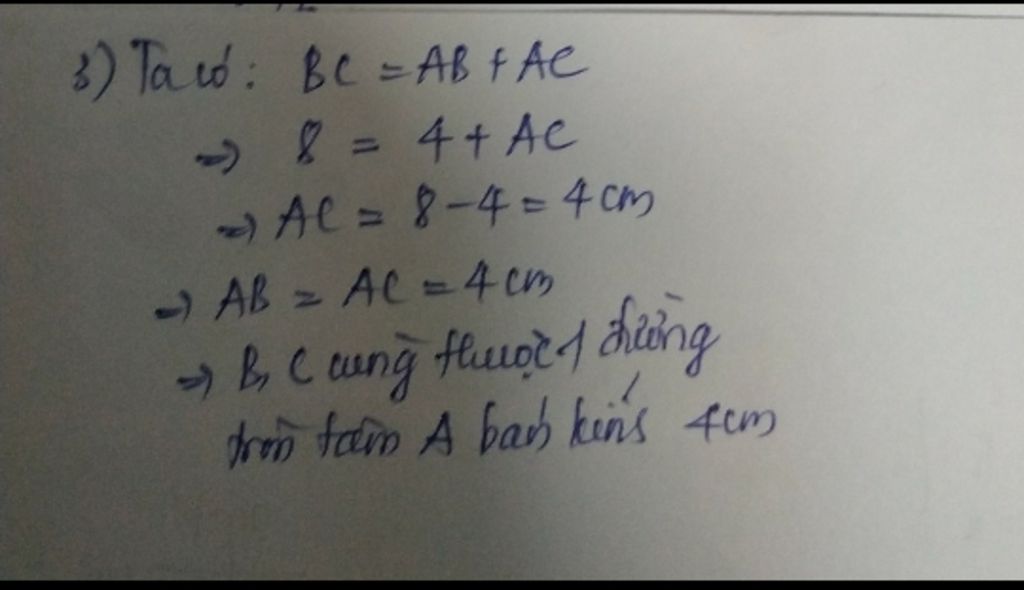 3) Ta có: BC = AB + AC
=> 8 = 4 + AC
=> AC = 8 - 4 = 4 cm
=> AB = AC = 4 cm
=> B, C cùng thuộc 1 đường
tròn tâm A bán kính 4cm